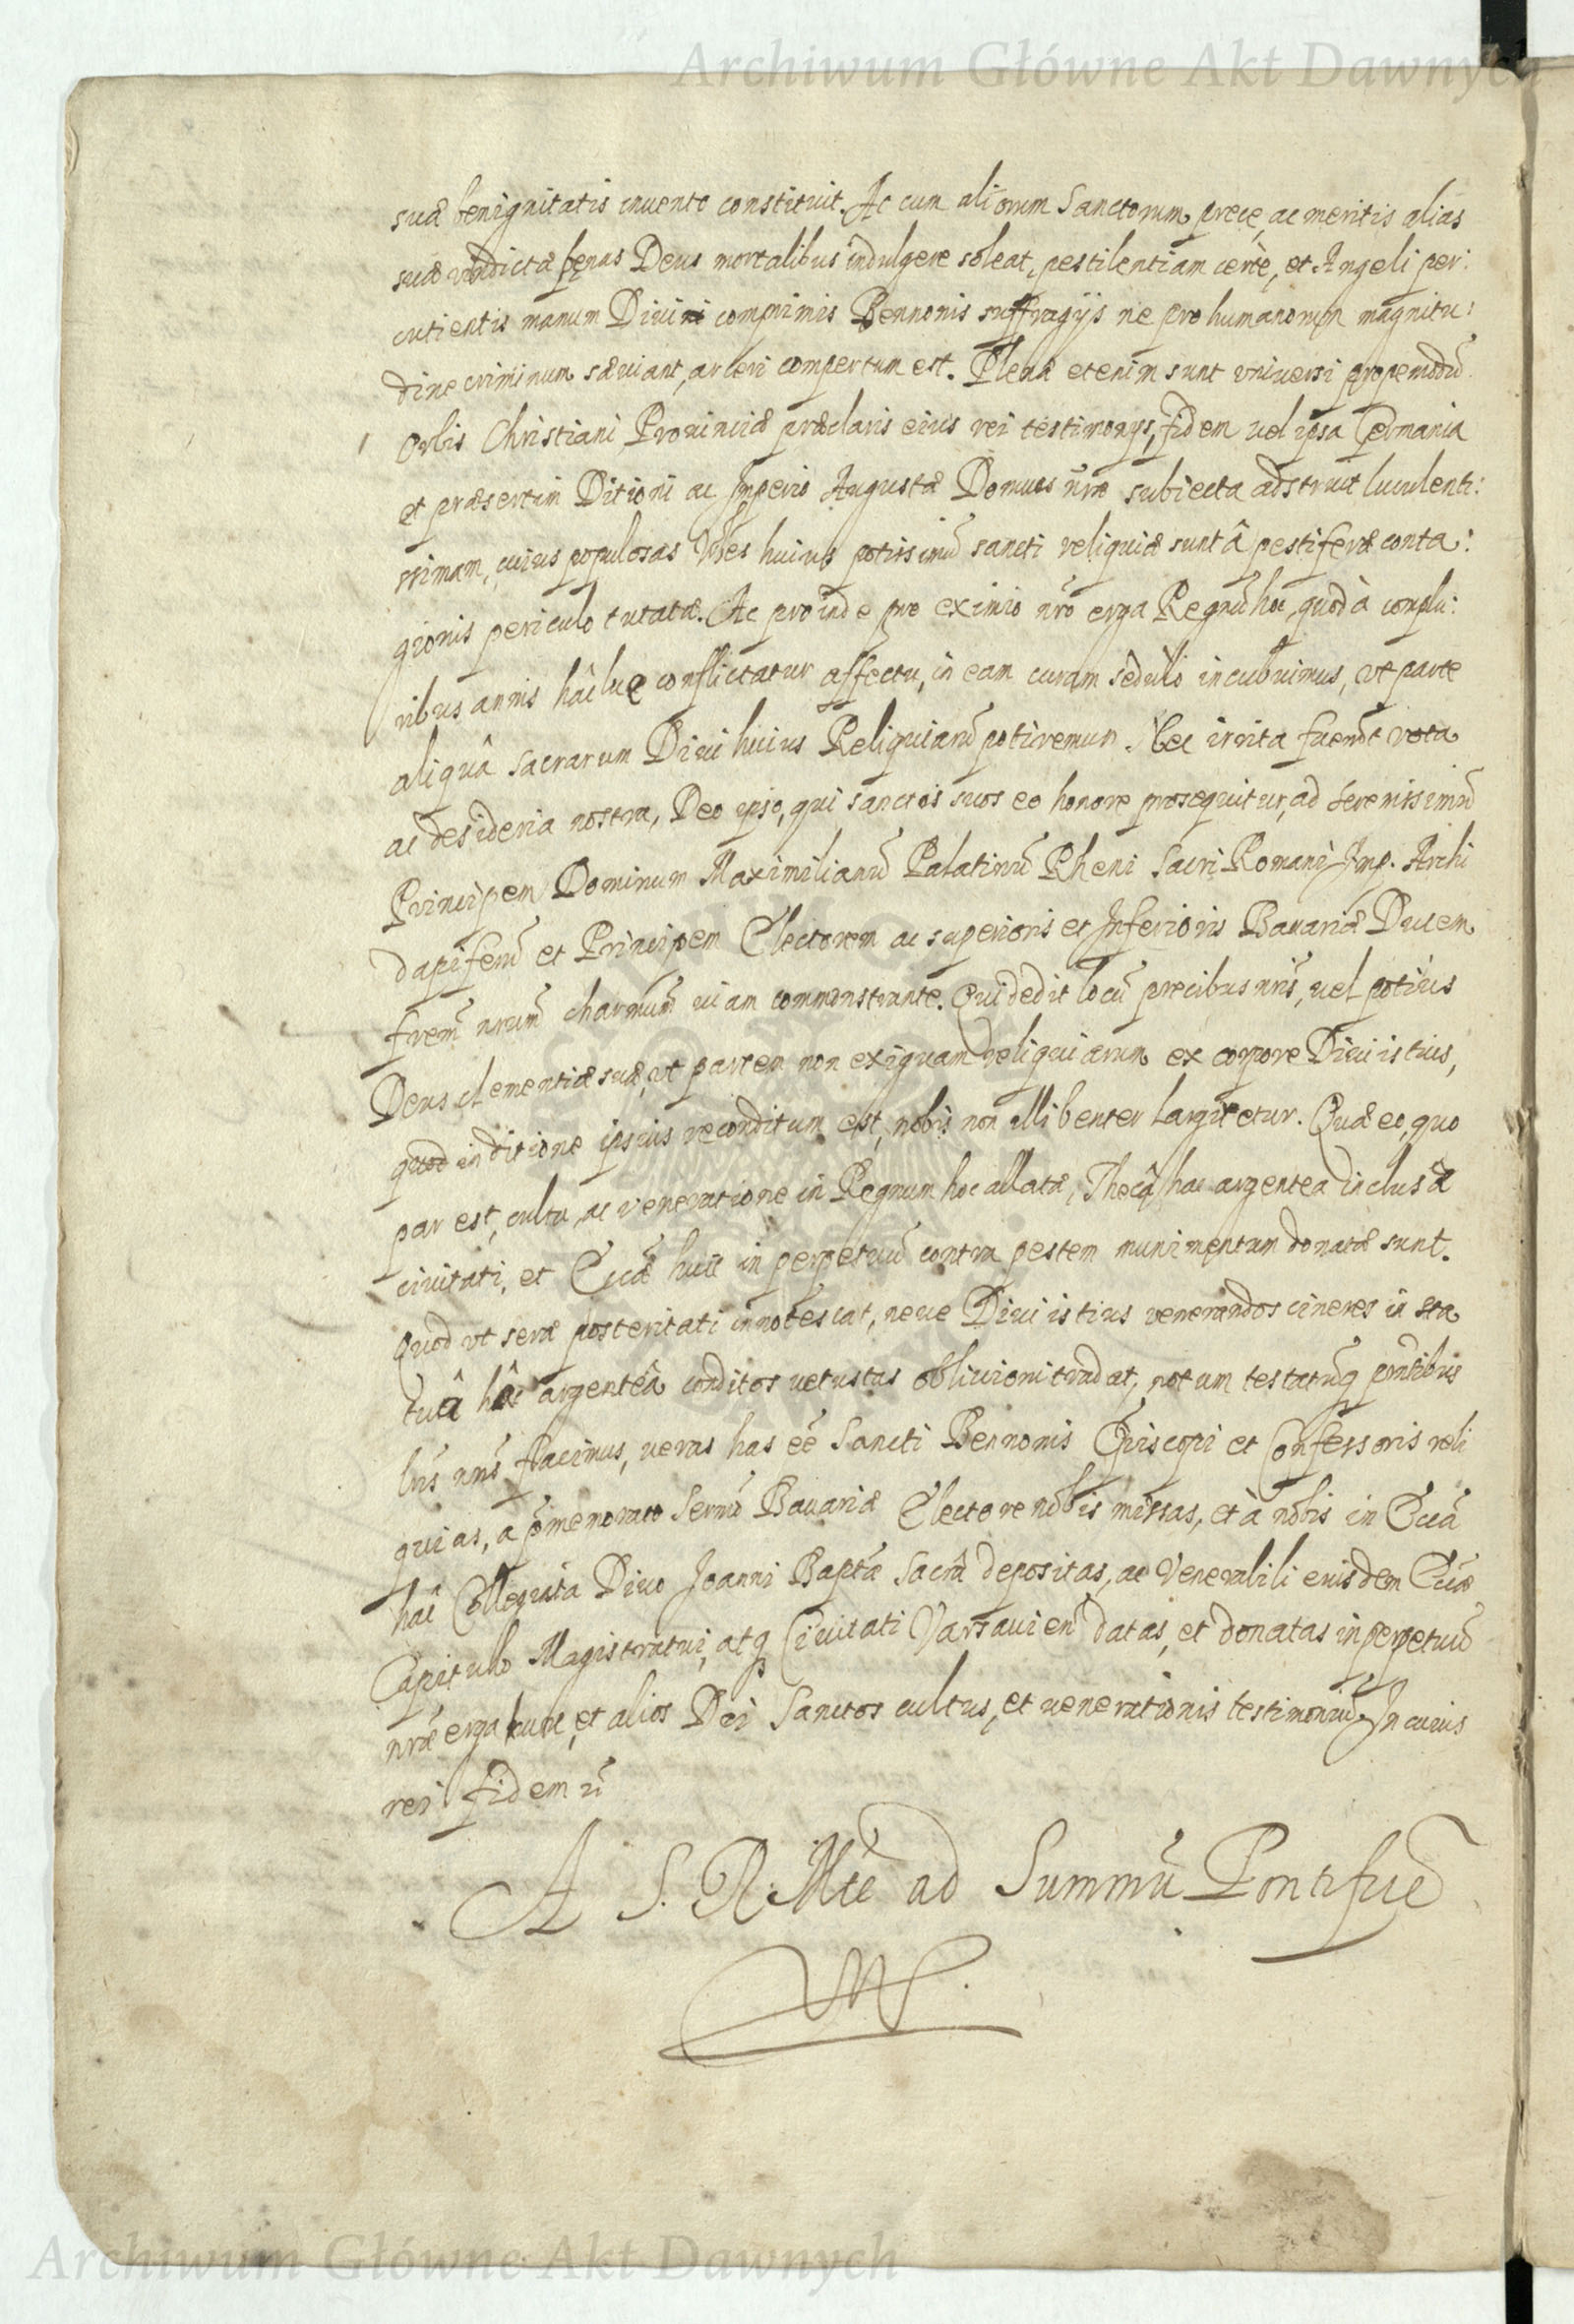 Archiwum Główne Akt Dawnych
suæ benignitatis inuento constituit. Ac cum aliorum Sanctorum prece, ac meritis alias
suæ vindictæ pęnas Deus mortalibus indulgere soleat, pestilentiam certè, et Angeli per:
cutientis manum Diui comprimis Bennonis suffragijs ne pro humanorum magnitu:
dine criminum sæuiant, arceri compertum est. Plenæ etenim sunt vniuersi propemodū
Orbis Christiani Prouinciæ præclaris eius rei testimonijs, fidem uel ipsa Germania
et præsertim Ditioni ac Imperio Augustæ Domus nr̃æ subiecta adstruit luculenti:
ssimam, cuius populosas Vrbes huius potissimū sancti reliquiæ sunt â pestiferæ conta:
gionis periculo tutatæ. Ac proinde pro eximio nr̃o erga Regnū hoc, quod à complu:
ribus annis hâc lue conflictatur affectu, in eam curam sedulò incubuimus, vt parte
aliquâ sacrarum Diui huius Reliquiarū potiremur. Nec irrita fuerūt vota
ac desideria nostra, Deo ipso, qui sanctos suos eo honore prosequitur, ad Serenissimū
Principem Dominum Maximilianū Palatinū Rheni Sacri Romani Imp. Archi
dapiferū et Principem Electorem ac superioris et Inferioris Bauariæ Ducem
frem̃ nrum̃ charmum̃ uiam commonstrante. Qui dedit locū precibus nr̃is, uel potius
Deus clementiæ suæ, vt partem non exiguam reliquiarum ex corpore Diui istius,
quod in ditione ipsius reconditum est, nobis non illibenter largiretur. Quæ eo, quo
par est, cultu, ac veneratione in Regnum hoc allatæ, Thecâ hac argentea inclusæ
ciuitati, et Eccæ huic in perpetuū contra pestem munimentum donatæ sunt.
Quod vt seræ posteritati innotescat, neue Diui istius venerandos cineres in sta
tuâ hâc argenteâ conditos uetustas obliuioni tradat, notum testatūq pr̃ntibus
lr̃is nr̃is facimus, ueras has eē Sancti Bennonis Episcopi et Confessoris reli
quias, a p̃memorato Sermo Bauariæ Electore nobis missas, et à nobis in Eccã
hac Collegiata Diuo Joanni Baptæ sacrâ depositas, ac Venerabili eiusdem Eccæ
Capitulo Magistratui, atq Ciuitati Varsauien datas, et donatas in perpetuū
nr̃æ erga hunc, et alios Dei Sanctos cultus, et uenerationis testimoniū. In cuius
rei fidem
A S. R. Mte ad Summū Pontificē
Archiwum Główne Akt Dawnych